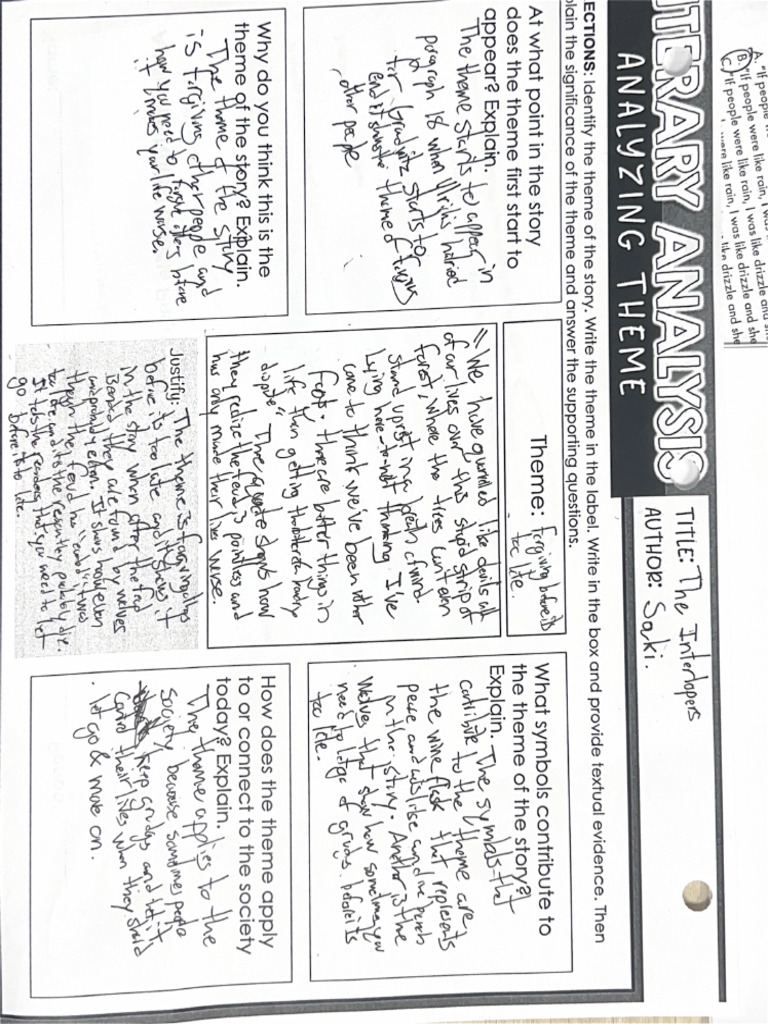 A. "If people
B. "If people were like rain, I was like drizzle and
C. "If people were like rain, I was like drizzle and she
were like rain, I was like drizzle and she
LITERARY ANALYSIS
ANALYZING THEME
TITLE: The Interlopers
AUTHOR: Saki.
ECTIONS: Identify the theme of the story. Write the theme in the label. Write in the box and provide textual evidence. Then
plain the significance of the theme and answer the supporting questions.
At what point in the story
does the theme first start to
appear? Explain.
The theme starts to appear in
paragraph 18 when Ulrichs hatried
for Gradwitz starts to
end it shows the theme of forgiving
other people
Theme: forgiving before its
too late.
"We have quarreled like devils all
of our lives over this stupid strip of
forest, where the trees can't even
stand upright in a breath of wind.
Lying here to-night thinking I've
come to think we've been rather
fools. there are better things in
life than getting the better of a boundry
dispute." The quote shows how
they realize the feud is pointless and
has only made their lives worse.
Justify: The theme is forgiving others
before it is too late and it shows it
in the story when after the feud
ended they are found by wolves
and probably eaten. It shows however
though the feud has ended it was
too late and its the reason they probably die.
It tells the readers that you need to let
go before its to late.
What symbols contribute to
the theme of the story?
Explain. The symbols that
contribute to the theme are
the wine flask that represents
peace
in the story. Another is the
Wolves that show how sometimes you
need to let go of grudges before its
too late.
Why do you think this is the
theme of the story? Explain.
The theme of the story
is forgiving other people and
how you need to forgive others before
it makes your life worse.
How does the theme apply
to or connect to the society
today? Explain.
The theme applies to the
Society because some people
keep grudges and let it
control their lives when they should
let go & move on.